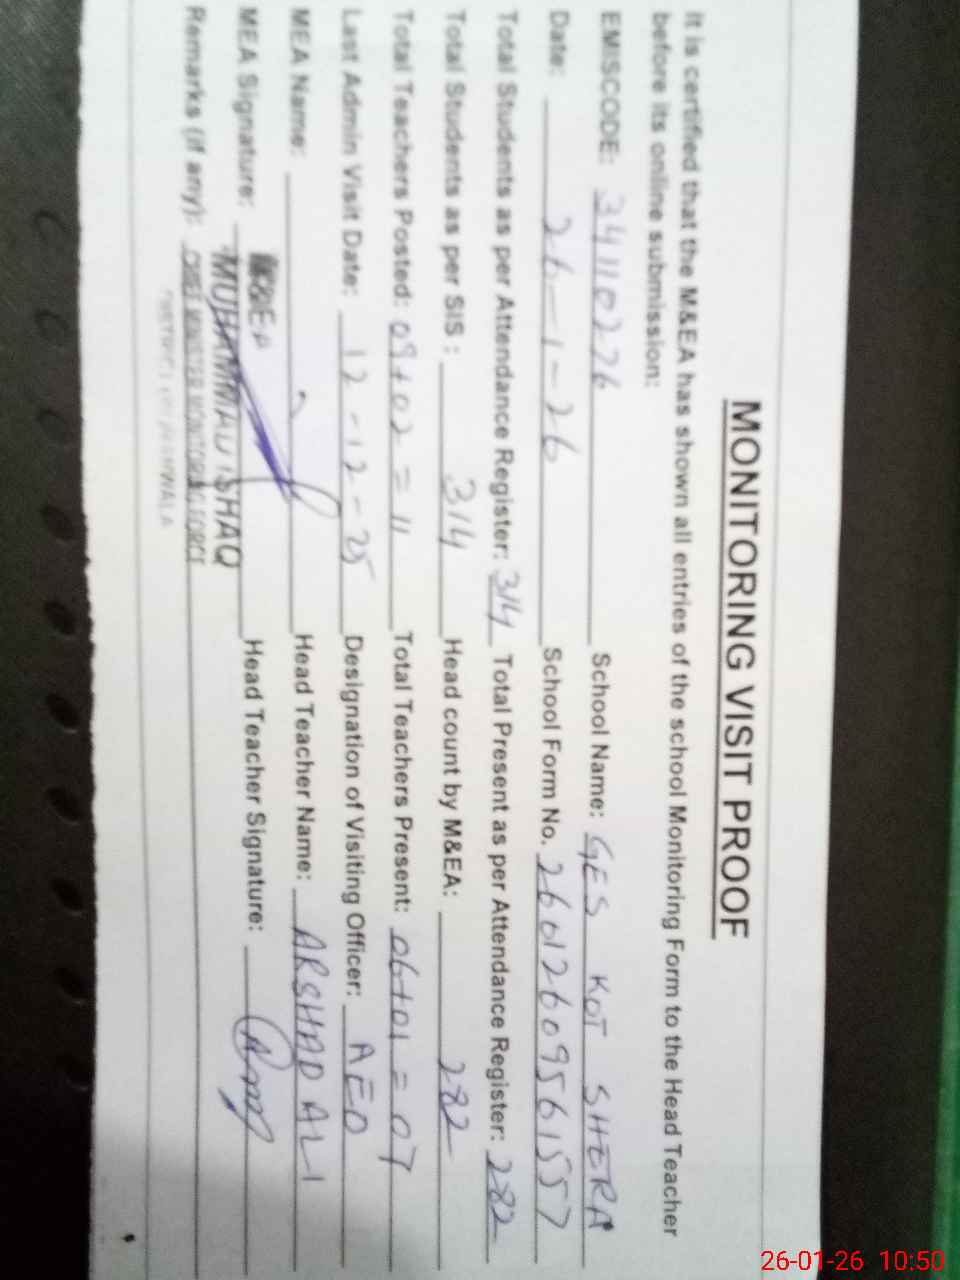 MONITORING VISIT PROOF
It is certified that the M&EA has shown all entries of the school Monitoring Form to the Head Teacher
before its online submission:
EMISCODE: 34110276 School Name: GES KOT SHERA
Date: 26-1-26 School Form No. 26012609561557
Total Students as per Attendance Register: 314 Total Present as per Attendance Register: 282
Total Students as per SIS: 314 Head count by M&EA: 282
Total Teachers Posted: 09+02=11 Total Teachers Present: 06+01=07
Last Admin Visit Date: 12-12-25 Designation of Visiting Officer: AEO
MEA Name: Head Teacher Name: ARSHAD ALI
MEA Signature: MUHAMMAD ISHAQ Head Teacher Signature:
Remarks (if any): CHIEF MINISTER MONITORING FORCE
26-01-26 10:50